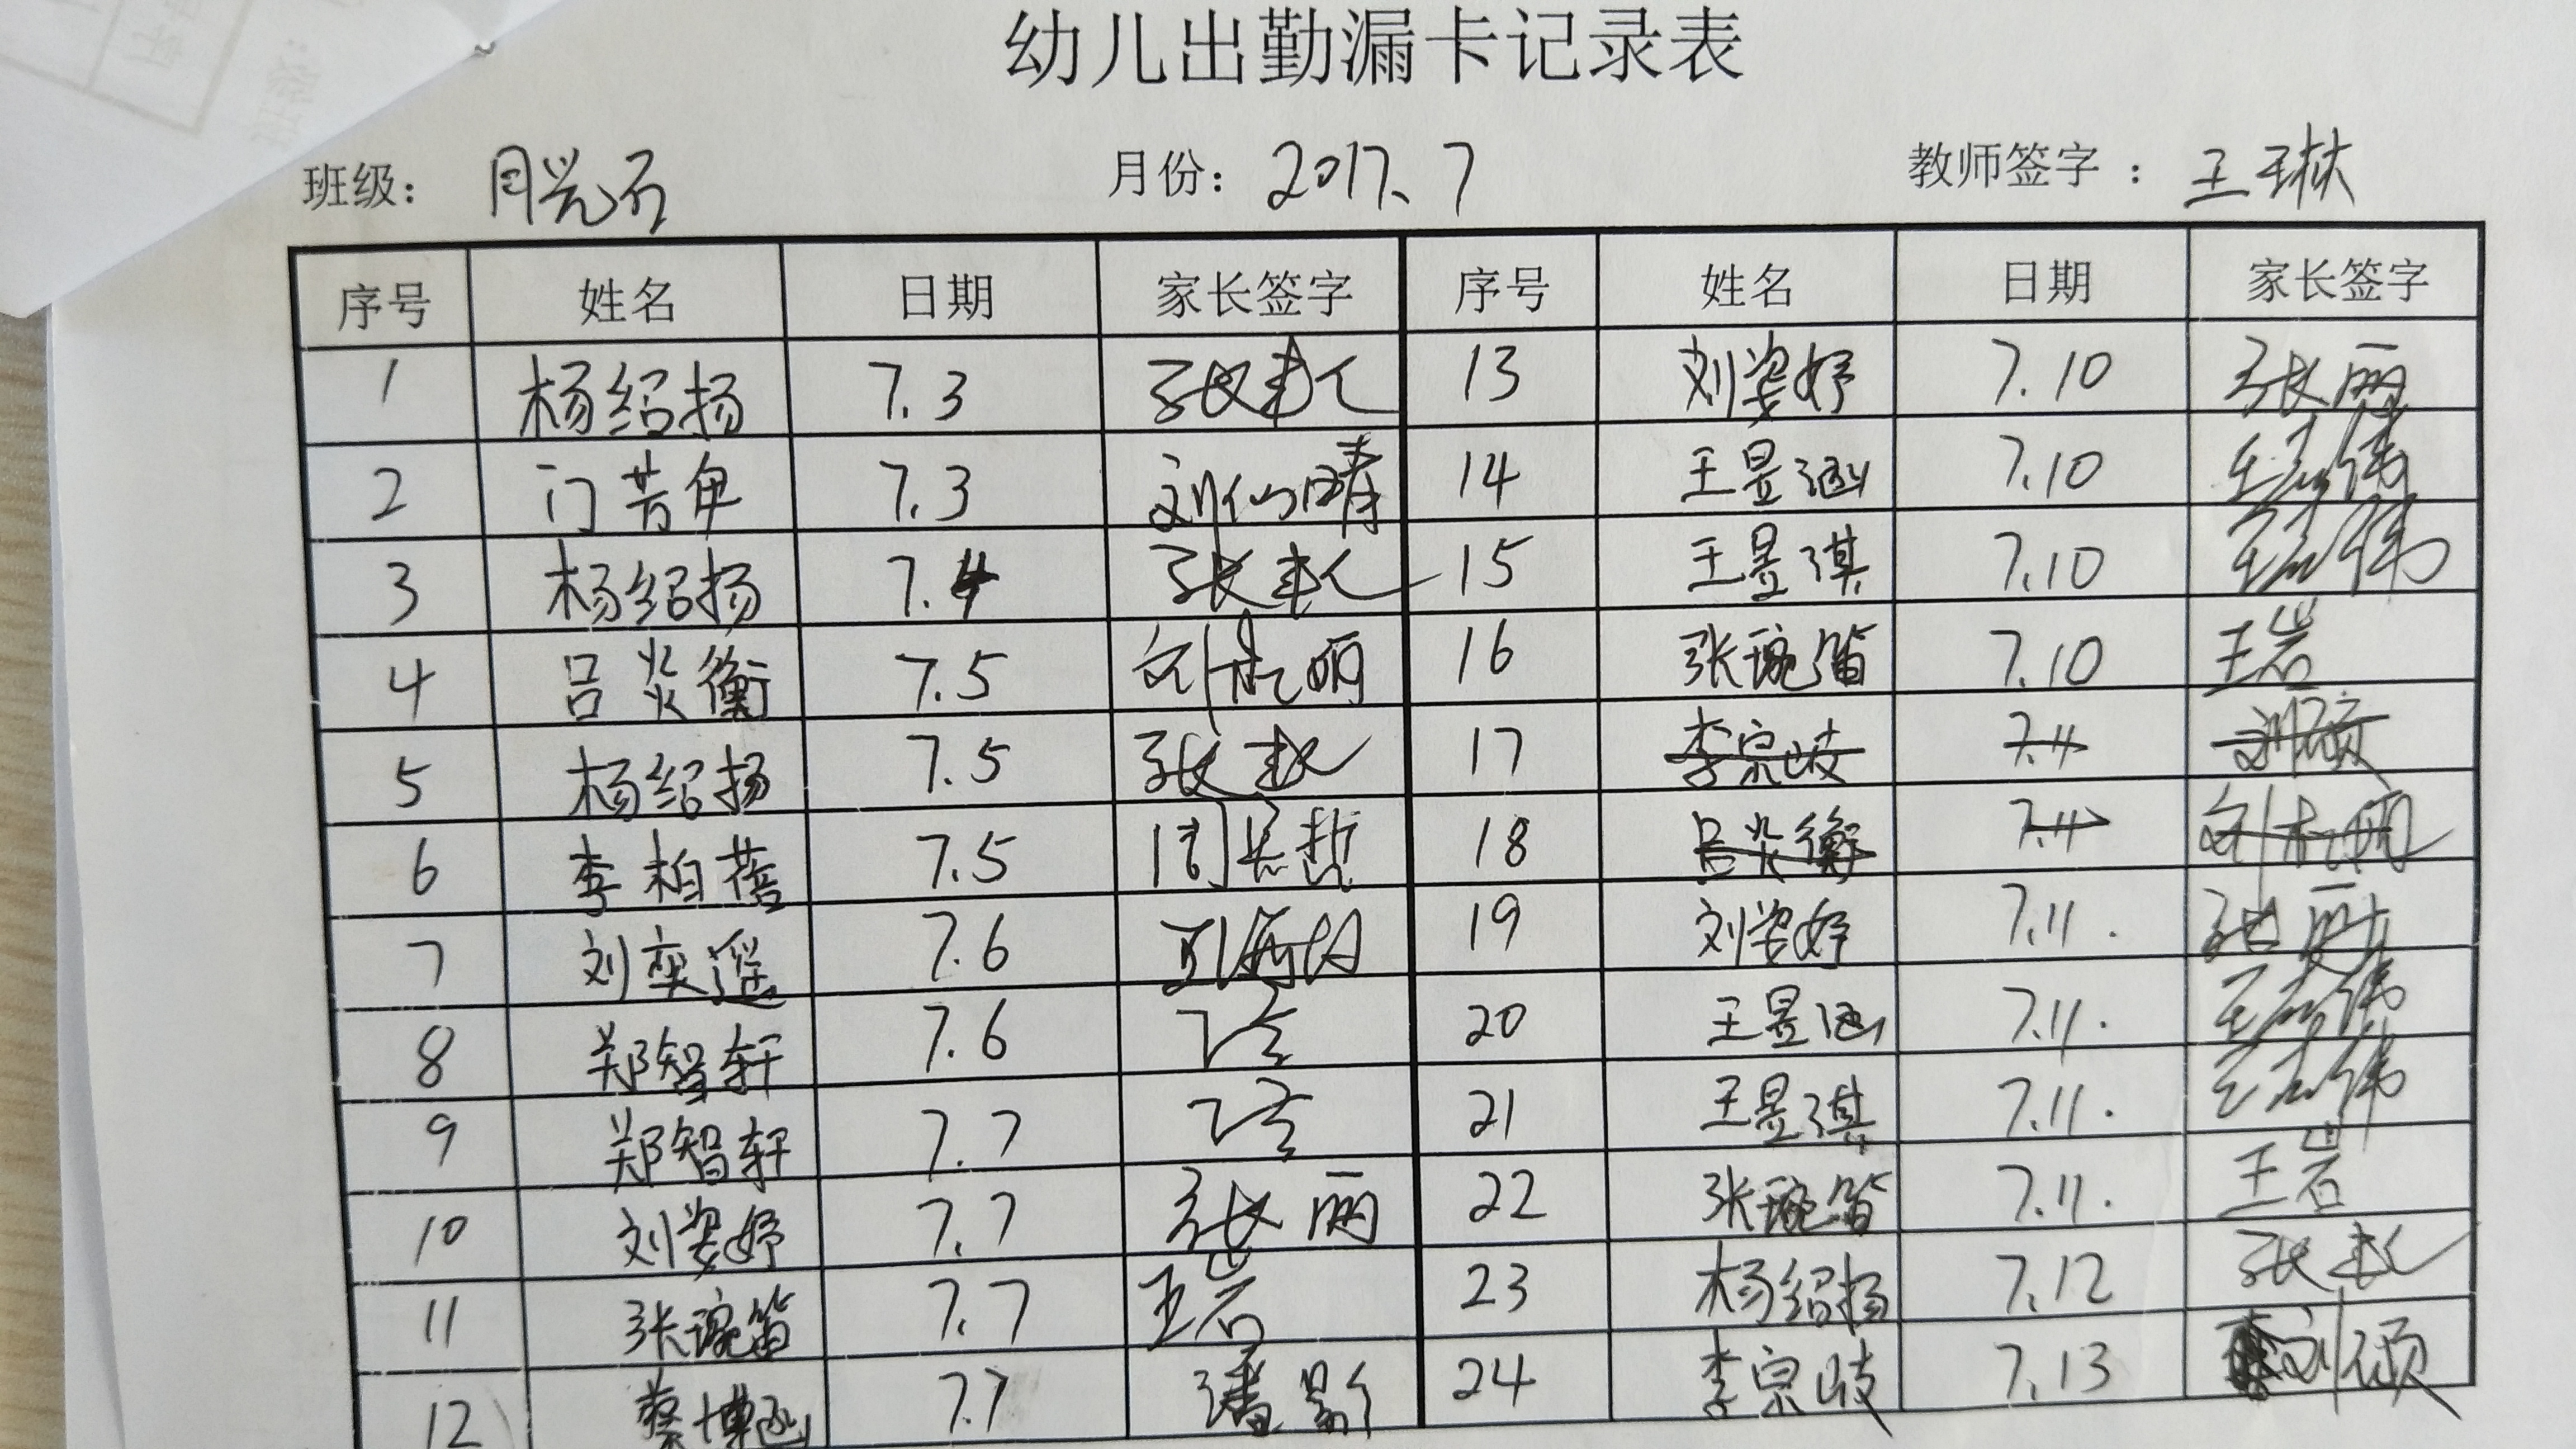 幼儿出勤漏卡记录表
班级： 月光石 月份： 2017.7 教师签字： 王琳
序号 姓名 日期 家长签字 序号 姓名 日期 家长签字
1 杨绍扬 7.3 13 刘姿妤 7.10 张丽
2 门芳伊 7.3 刘仙晴 14 王昱涵 7.10 王志伟
3 杨绍扬 7.4 15 王昱淇 7.10 王志伟
4 吕炎衡 7.5 16 张琬笛 7.10 王岩
5 杨绍扬 7.5 17 李宗岐 7.11 刘硕
6 李柏蓓 7.5 18 吕炎衡 7.11
7 刘奕遥 7.6 19 刘姿妤 7.11. 张丽
8 郑智轩 7.6 20 王昱涵 7.11. 王志伟
9 郑智轩 7.7 21 王昱淇 7.11. 王志伟
10 刘姿妤 7.7 张丽 22 张琬笛 7.11. 王岩
11 张琬笛 7.7 王岩 23 杨绍扬 7.12
12 蔡博涵 7.7 潘影 24 李宗岐 7.13 刘硕